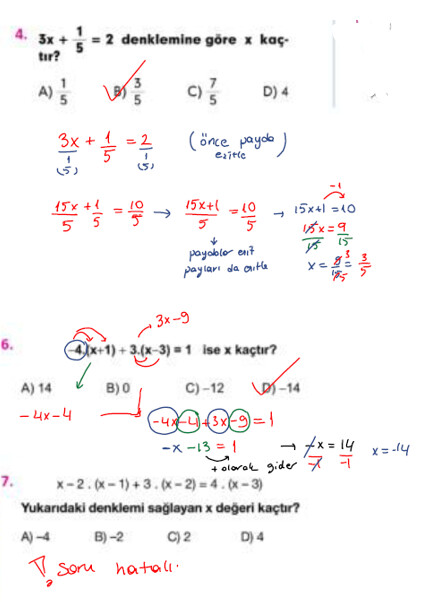 4. 3x + 1/5 = 2 denklemine göre x kaç-
tır?
A) 1/5 B) 3/5 C) 7/5 D) 4
3x/1 + 1/5 = 2/1 (önce payda
(5) (5) eşitle)
15x/5 + 1/5 = 10/5 → 15x+1/5 = 10/5 → 15x+1 = 10
-1
15x/15 = 9/15
paydalar eşit
payları da eşitle
x = 9/15 = 3/5
3x-9
6. -4.(x+1) + 3.(x-3) = 1 ise x kaçtır?
A) 14 B) 0 C) -12 D) -14
-4x-4
-4x-4+3x-9 = 1
-x -13 = 1 → -x/-1 = 14/-1 x = -14
+ olarak gider
7. x - 2 . (x - 1) + 3 . (x - 2) = 4 . (x - 3)
Yukarıdaki denklemi sağlayan x değeri kaçtır?
A) -4 B) -2 C) 2 D) 4
soru hatalı.